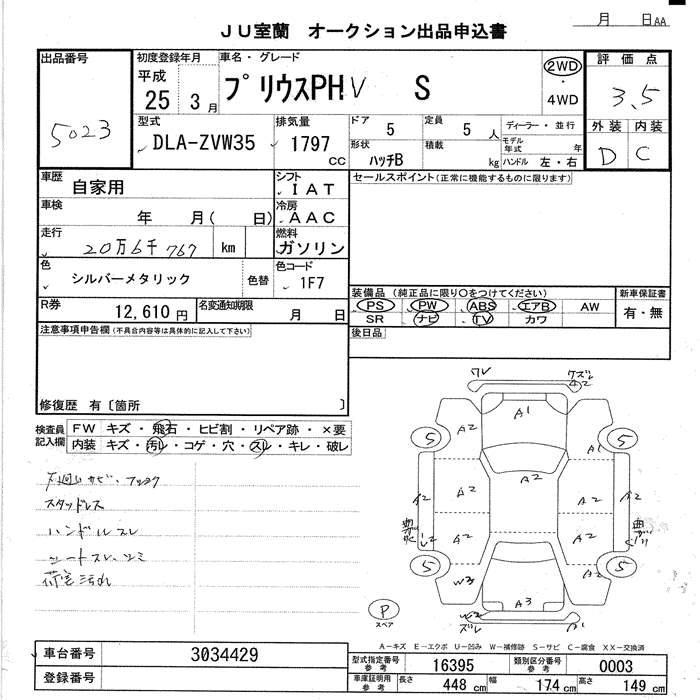 JU室蘭 オークション出品申込書
月 日 AA
出品番号
5023
初度登録年月
平成
25 3月
車名・グレード
プリウスPHV S
2WD
・
4WD
評価点
3.5
外装 内装
D C
型式
DLA-ZVW35
排気量
1797 CC
ドア 5
定員 5 人
ディーラー・並行
形状 ハッチB
積載 kg
モデル年式 年
ハンドル 左・右
車歴 自家用
シフト IAT
セールスポイント(正常に機能するものに限ります)
車検 年 月( 日)
冷房 AAC
走行 20万6千767 km
燃料 ガソリン
色 シルバーメタリック 色替
色コード 1F7
装備品 (純正品に限り○をつけてください)
新車保証書
PS PW ABS エアB AW
有・無
SR ナビ TV カワ
R券 12,610円
名変通知期限 月 日
後日品
注意事項申告欄(不具合内容等は具体的に記入して下さい)
修復歴 有〔箇所 〕
検査員記入欄
FW キズ・飛石・ヒビ割・リペア跡・×要
内装 キズ・汚れ・コゲ・穴・スレ・キレ・破レ
スタッドレス
ハンドルスレ
シートスレ、シミ
荷室汚れ
A2
A1
A2
5
5
A2
A2
A2
A1
A2
A2
A2
5
5
W3
A2
A3
W2
ズレ
P
スペア
A-キズ E-エクボ U-凹み W-補修跡 S-サビ C-腐食 XX-交換済
車台番号 3034429
登録番号
型式指定番号 参考 16395
類別区分番号 参考 0003
車庫証明用 参考 長さ 448 cm 幅 174 cm 高さ 149 cm